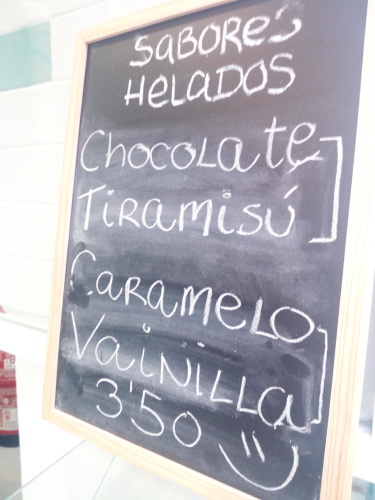 SABORES
HELADOS
Chocolate
Tiramisú
Caramelo
Vainilla
3'50